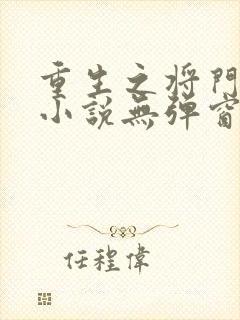 重生之将門
小說無弹窗
任程偉